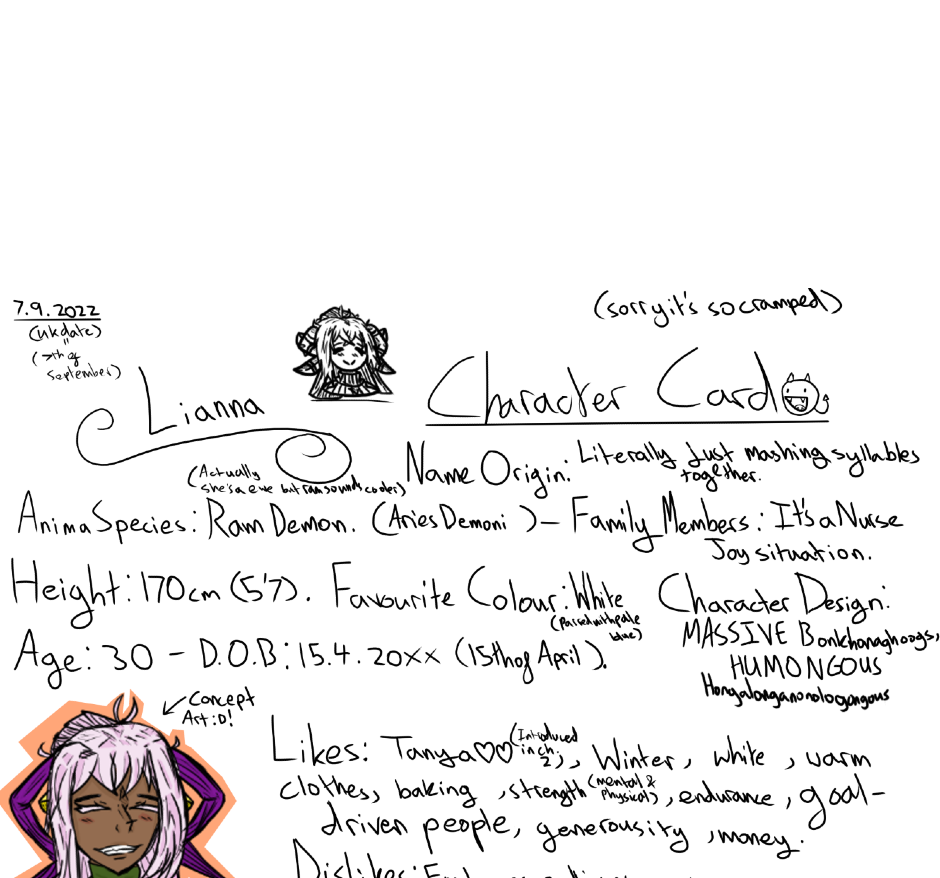 7.9.2022
(uk date)
(7th of
September)
(sorry it's so cramped)
Lianna
Character Card
(Actually
she's a ewe but ram sounds cooler)
Name Origin: Literally just mashing syllables
together.
Anima Species: Ram Demon. (Aries Demoni) – Family Members: It's a Nurse
Joy situation.
Height: 170cm (5'7). Favourite Colour: White
(Paired with pale
blue)
Character Design:
MASSIVE
HUMONGOUS
Age: 30 – D.O.B: 15.4.20xx (15th of April).
Concept
Art :D!
Likes: Tanya♡♡ (Introduced
in ch.
2), Winter, white, warm
clothes, baking, strength (mental &
physical), endurance, goal-
driven people, generousity, money.
Dislikes: